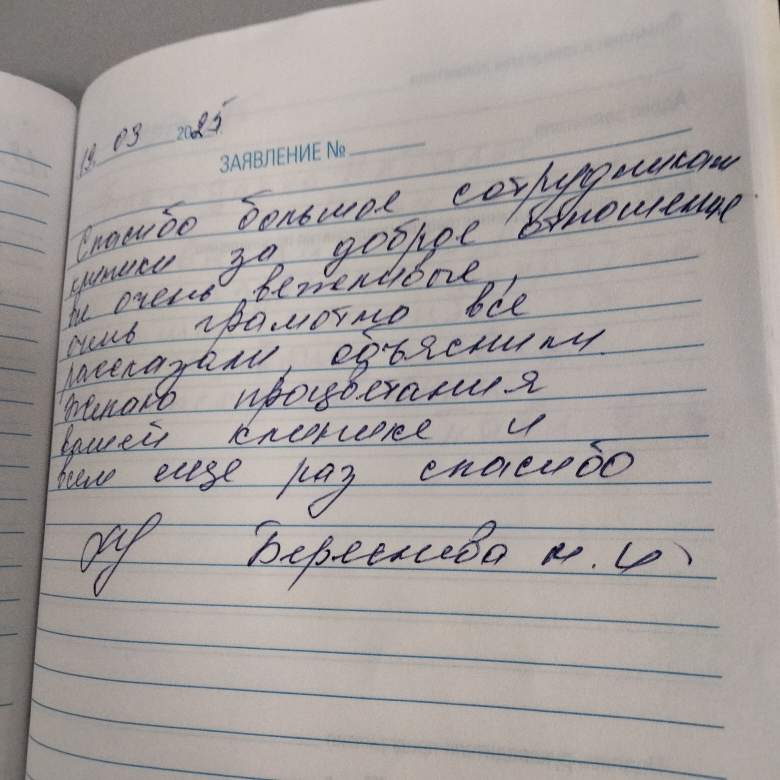 19. 03 2025
ЗАЯВЛЕНИЕ №
Спасибо большое сотрудникам
клиники за доброе отношение
очень вежливые,
очень грамотно все
рассказали, объяснили
Желаю процветания
вашей клинике и
всем еще раз спасибо
Береснева Н. И